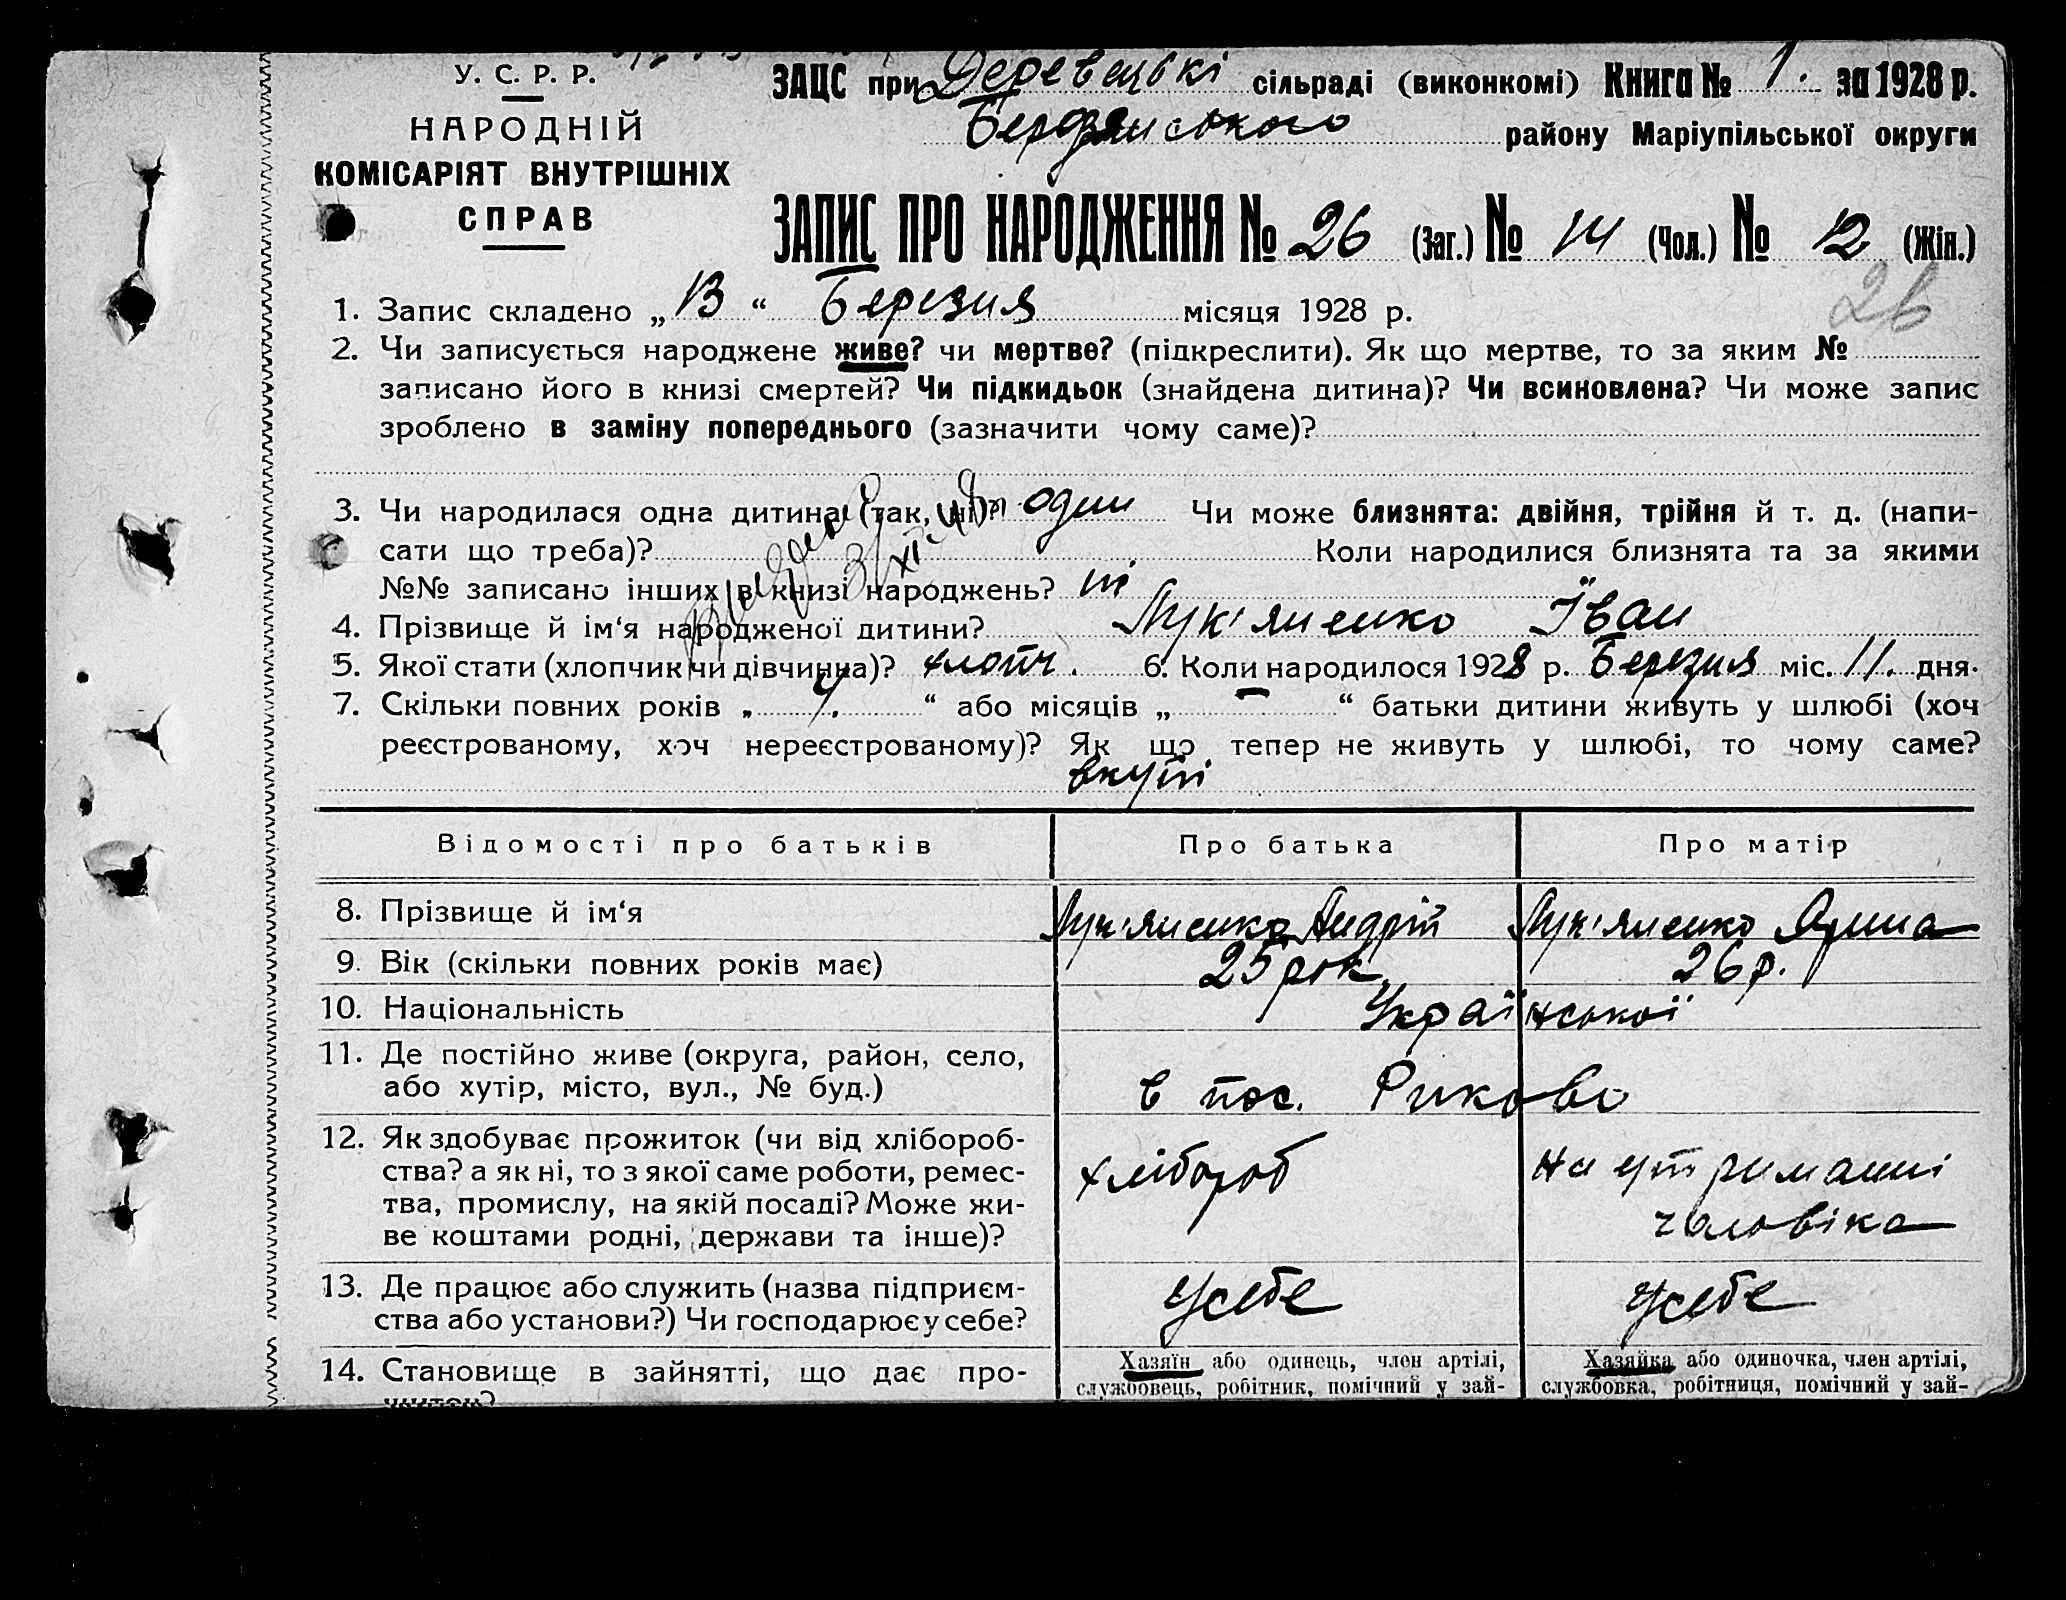 У. С. Р. Р.
НАРОДНІЙ
КОМІСАРІЯТ ВНУТРІШНІХ
СПРАВ
ЗАЦС при Деревецькі сільраді (виконкомі) Книга № 1. за 1928 р.
Бердянського району Маріупільської округи
ЗАПИС ПРО НАРОДЖЕННЯ № 26 (Заг.) № 14 (Чол.) № 12 (Жін.)
26
1. Запис складено „ 13 “ Березня місяця 1928 р.
2. Чи записується народжене живе? чи мертве? (підкреслити). Як що мертве, то за яким №
записано його в книзі смертей? Чи підкидьок (знайдена дитина)? Чи всиновлена? Чи може запис
зроблено в заміну попереднього (зазначити чому саме)?
3. Чи народилася одна дитина (так, ні)? один Чи може близнята: двійня, трійня й т. д. (напи-
сати що треба)? Коли народилися близнята та за якими
№№ записано інших в книзі народжень? ні
4. Прізвище й ім‘я народженої дитини? Лук'яненко Іван
5. Якої стати (хлопчик чи дівчинка)? хлопч. 6. Коли народилося 1928 р. Березня міс. 11. дня.
7. Скільки повних років „ 4. “ або місяців „ – “ батьки дитини живуть у шлюбі (хоч
реєстрованому, хоч нереєстрованому)? Як що тепер не живуть у шлюбі, то чому саме?
вкупі
Відомості про батьків Про батька Про матір
8. Прізвище й ім‘я Лук'яненко Андрій Лук'яненко Ярина
9. Вік (скільки повних років має) 25 рок 26 р.
10. Національність Української
11. Де постійно живе (округа, район, село,
або хутір, місто, вул., № буд.) в пос. Риково
12. Як здобуває прожиток (чи від хлібороб-
ства? а як ні, то з якої саме роботи, ремес-
тва, промислу, на якій посаді? Може жи-
ве коштами родні, держави та інше)? хлібороб на утриманні чоловіка
13. Де працює або служить (назва підприєм-
ства або установи?) Чи господарює у себе? у себе у себе
14. Становище в зайнятті, що дає про-
Хазяїн або одинець, член артілі,
службовець, робітник, помічний у зай-
Хазяйка або одиночка, член артілі,
службовка, робітниця, помічний у зай-